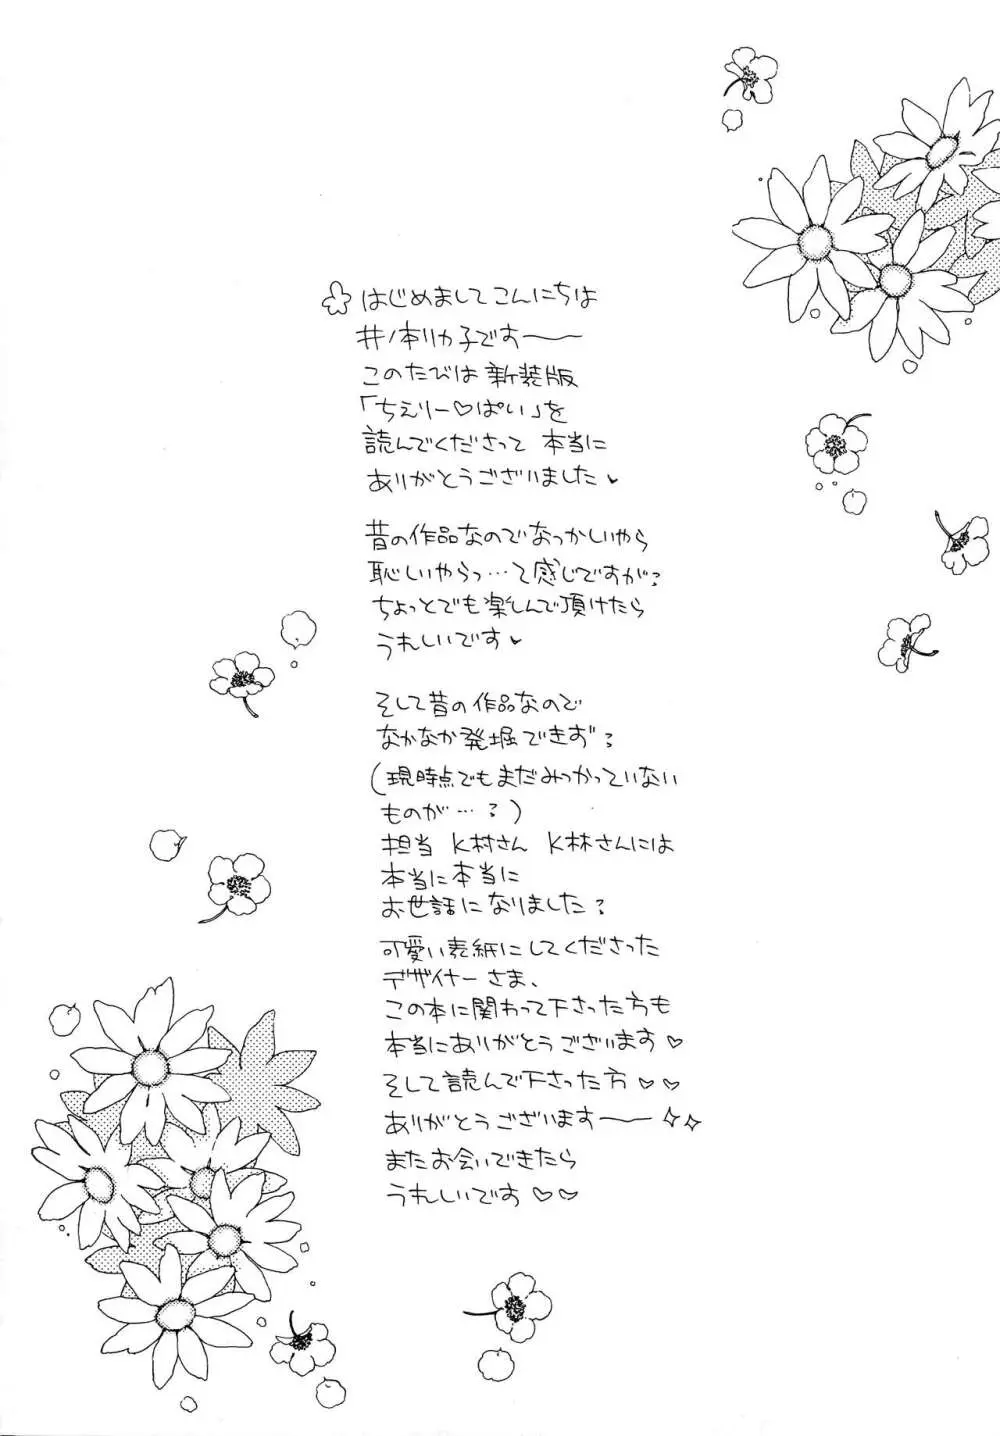 はじめまして こんにちは
井ノ本リカ子です〜
このたびは 新装版
「ちぇりー♡ぱい」を
読んでくださって 本当に
ありがとうございました♥
昔の作品なのでなつかしいやら
恥しいやらっ…て感じですが
ちょっとでも楽しんで頂けたら
うれしいです♥
そして昔の作品なので
なかなか発掘できず
(現時点でもまだみつかっていない
ものが…)
担当 K村さん K林さんには
本当に本当に
お世話になりました
可愛い表紙にしてくださった
デザイナーさま、
この本に関わって下さった方も
本当にありがとうございます♡
そして読んで下さった方♡♡
ありがとうございます〜✧✧
またお会いできたら
うれしいです♡♡